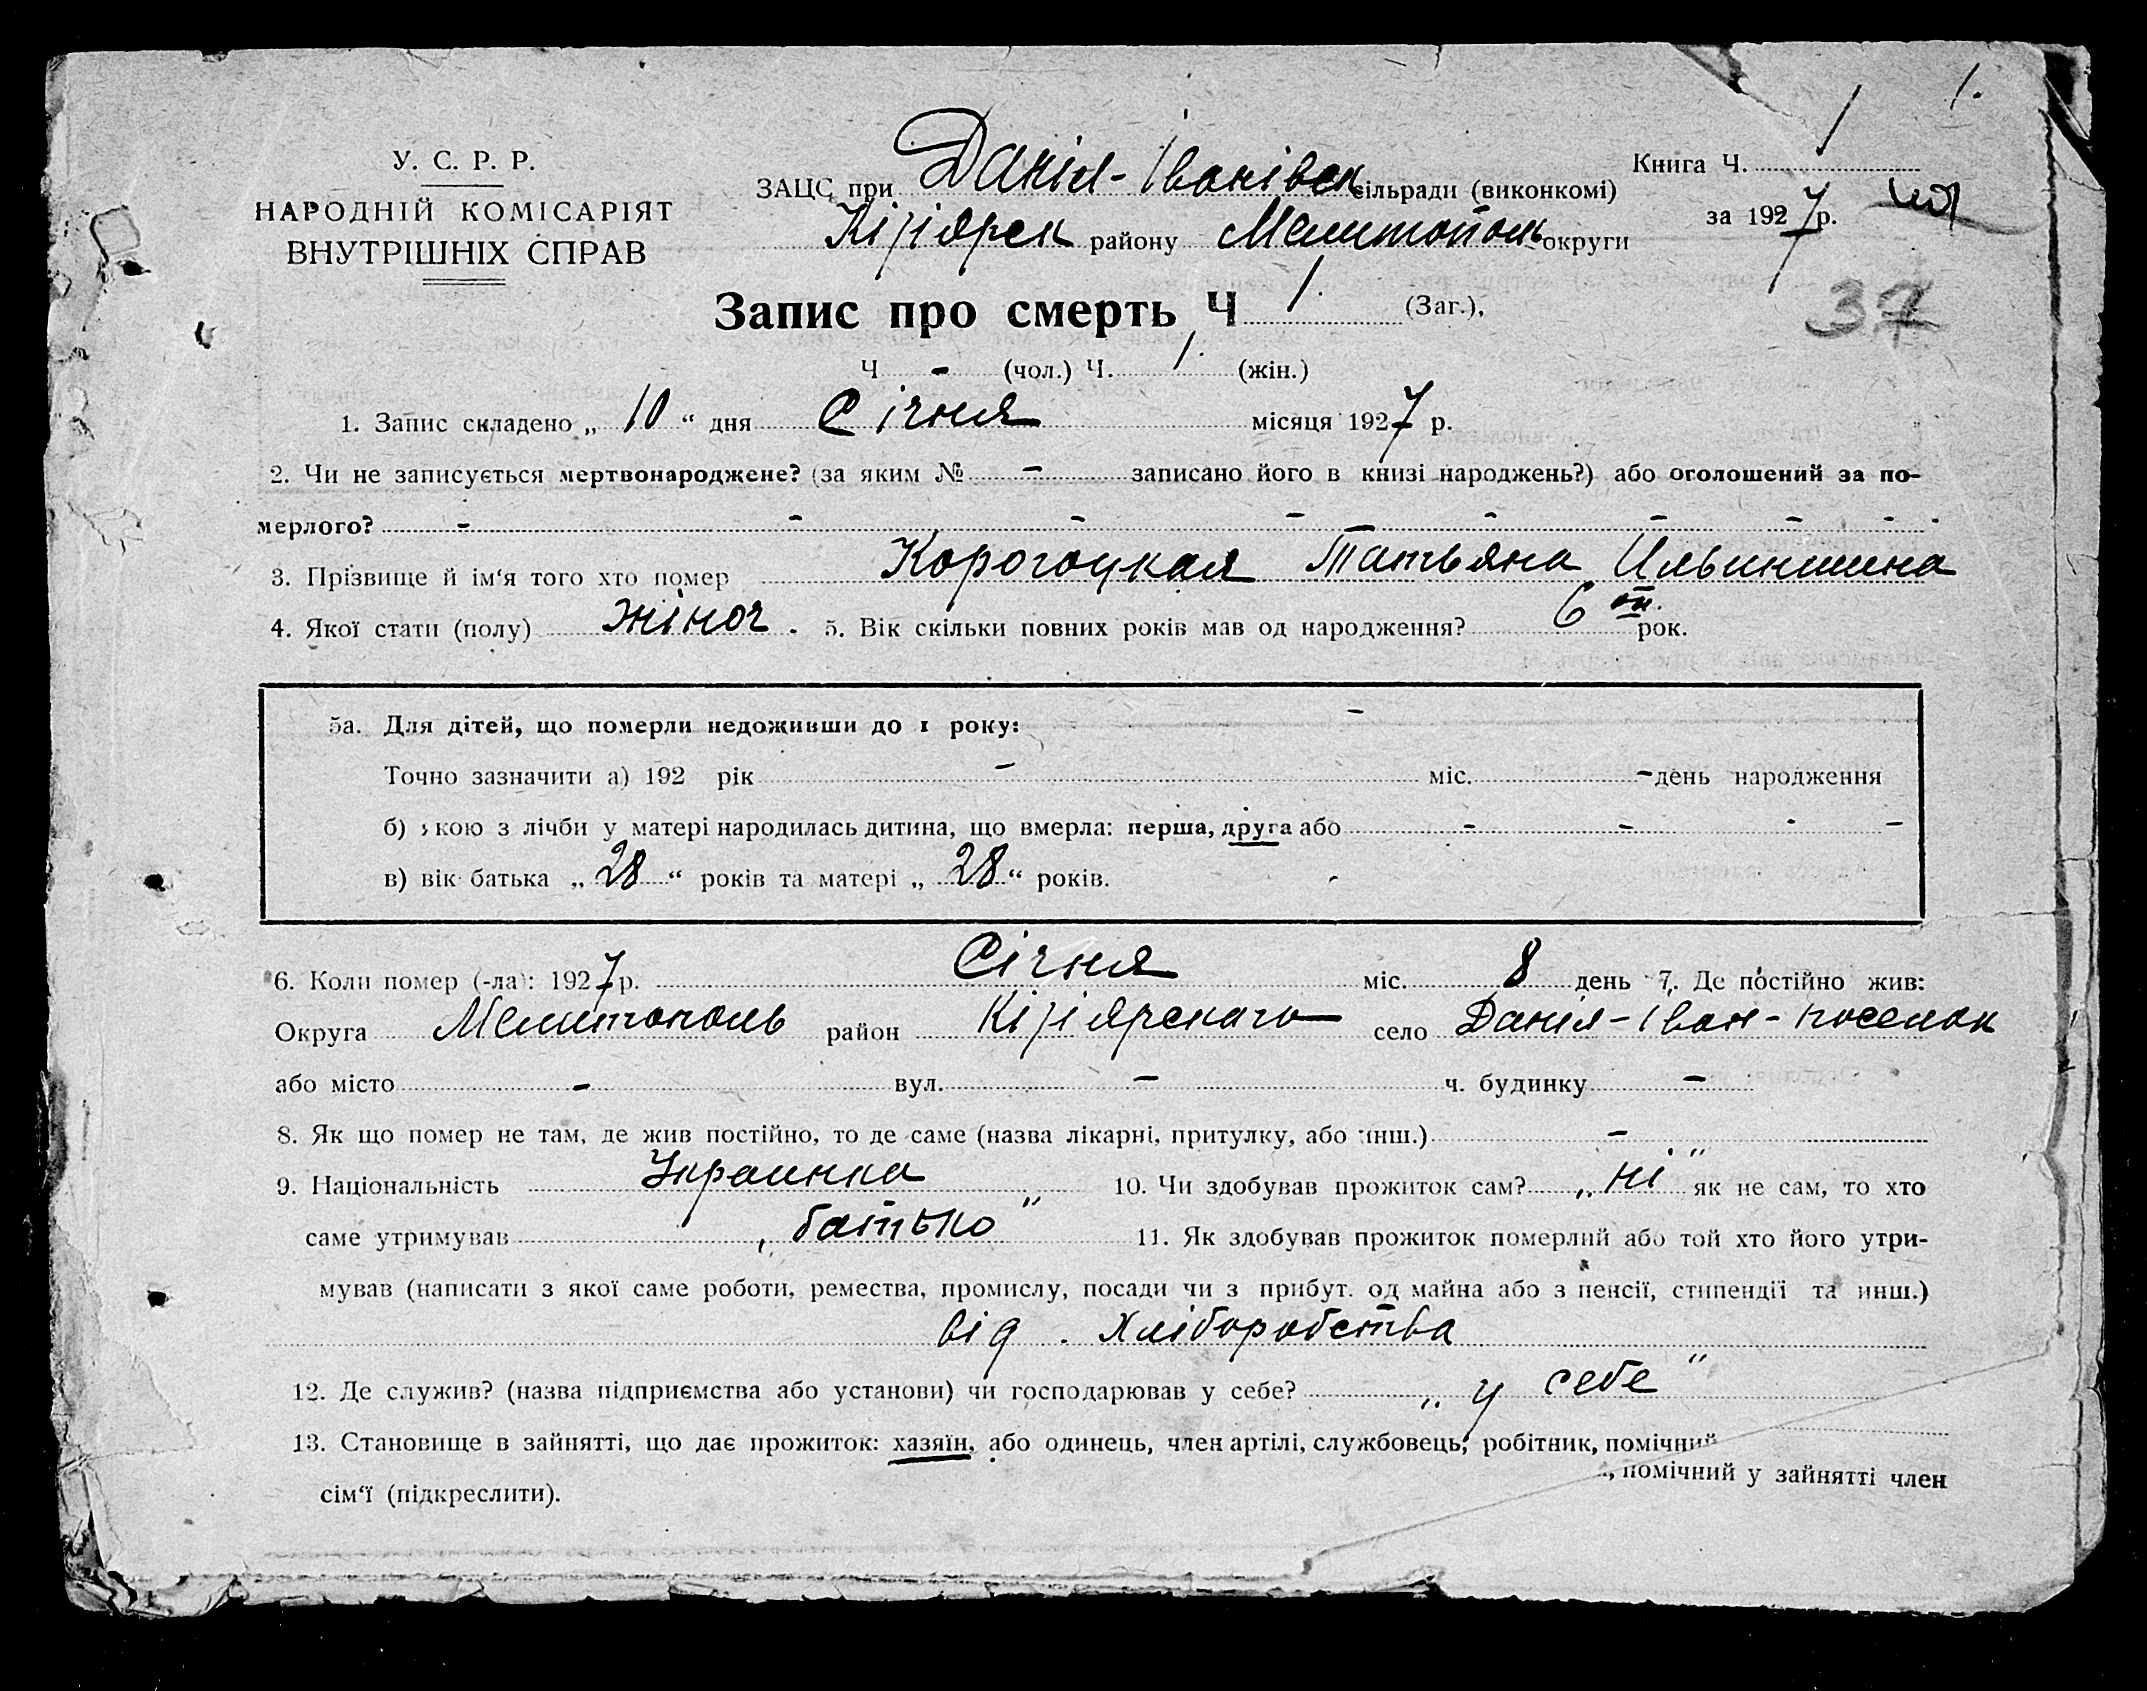 1.
У. С. Р. Р.
НАРОДНІЙ КОМІСАРІЯТ
ВНУТРІШНІХ СПРАВ
ЗАЦС при Даніл-Іванівск сільради (виконкомі)
Кізіярск району Мелитополь округи
Книга Ч. 1
за 1927 р.
37
Запис про смерть Ч 1. (Заг.),
Ч - (чол.) Ч. 1. (жін.)
1. Запис складено „ 10 “ дня Січня місяця 1927 р.
2. Чи не записується мертвонароджене? (за яким № - записано його в книзі народжень?) або оголошений за по-
мерлого? - - - - - - - - -
3. Прізвище й ім‘я того хто помер Корогоцкая Татьяна Ильинишна
4. Якої стати (полу) жіноч. 5. Вік скільки повних років мав од народження? 6 рок.
5а. Для дітей, що померли недоживши до 1 року: -
Точно зазначити а) 192 рік - міс. - день народження
б) якою з лічби у матері народилась дитина, що вмерла: перша, друга або - - - -
в) вік батька „ 28 “ років та матері „ 28 “ років. -
6. Коли помер (-ла): 1927 р. Січня міс. 8 день 7. Де постійно жив:
Округа Мелитополь район Кізіярскаго село Даніл-Іван-поселок
або місто - вул. - ч. будинку -
8. Як що помер не там, де жив постійно, то де саме (назва лікарні, притулку, або инш.) -
9. Національність Украинка 10. Чи здобував прожиток сам? „ ні ” як не сам, то хто
саме утримував „ батько ” 11. Як здобував прожиток померлий або той хто його утри-
мував (написати з якої саме роботи, ремества, промислу, посади чи з прибут. од майна або з пенсії, стипендії та инш.)
від . Хліборобства
12. Де служив? (назва підприємства або установи) чи господарював у себе? „ у себе ”
13. Становище в зайнятті, що дає прожиток: хазяїн, або одинець, член артілі, службовець, робітник, помічний
, помічний у зайнятті член
сім‘ї (підкреслити).